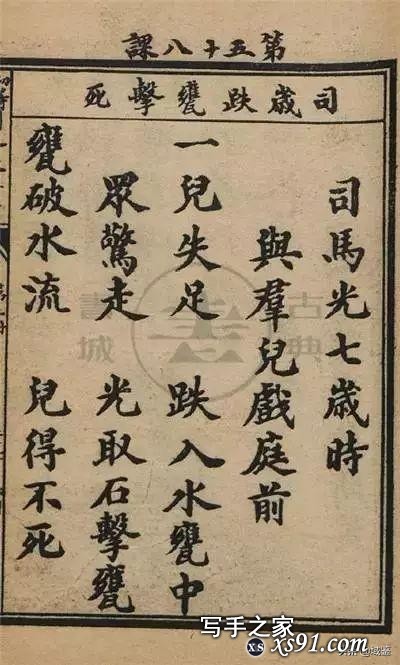 第五十八課
司歲跌甕擊死
司馬光七歲時
與羣兒戲庭前
一兒失足 跌入水甕中
眾驚走 光取石擊甕
甕破水流 兒得不死
古典
書城
写手之家
xs91.com